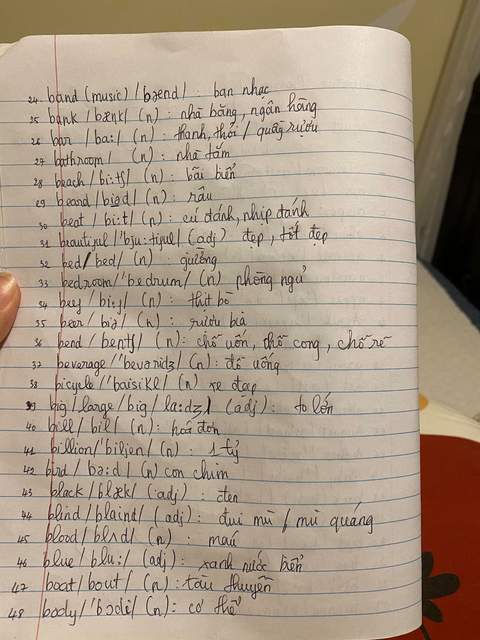 24 band (music) /bænd/ : ban nhạc
25 bank /bæŋk/ (n) : nhà băng, ngân hàng
26 bar /ba:/ (n) : thanh, thỏi / quầy rượu
27 bathroom / (n) : nhà tắm
28 beach /bi:tʃ/ (n) : bãi biển
29 beard /biəd/ (n) : râu
30 beat /bi:t/ (n) : cú đánh, nhịp đánh
31 beautiful /'bju:tiful/ (adj) đẹp, tốt đẹp
32 bed /bed/ (n) : giường
33 bedroom /'bedrum/ (n) phòng ngủ
34 beef /bi:f/ (n) : thịt bò
35 beer /biə/ (n) : rượu bia
36 bend /bentʃ/ (n) : chỗ uốn, chỗ cong, chỗ rẽ
37 beverage /'bevəridʒ/ (n) : đồ uống
38 bicycle /'baisikl/ (n) xe đạp
39 big/large /big/ la:dʒ/ (adj) : to lớn
40 bill /bil/ (n) : hoá đơn
41 billion /'biljən/ (n) : 1 tỷ
42 bird /bə:d/ (n) con chim
43 black /blæk/ (adj) : đen
44 blind /blaind/ (adj) : đui mù / mù quáng
45 blood /blʌd/ (n) : máu
46 blue /blu:/ (adj) : xanh nước biển
47 boat /bout/ (n) : tàu thuyền
48 body /'bɔdi/ (n) : cơ thể